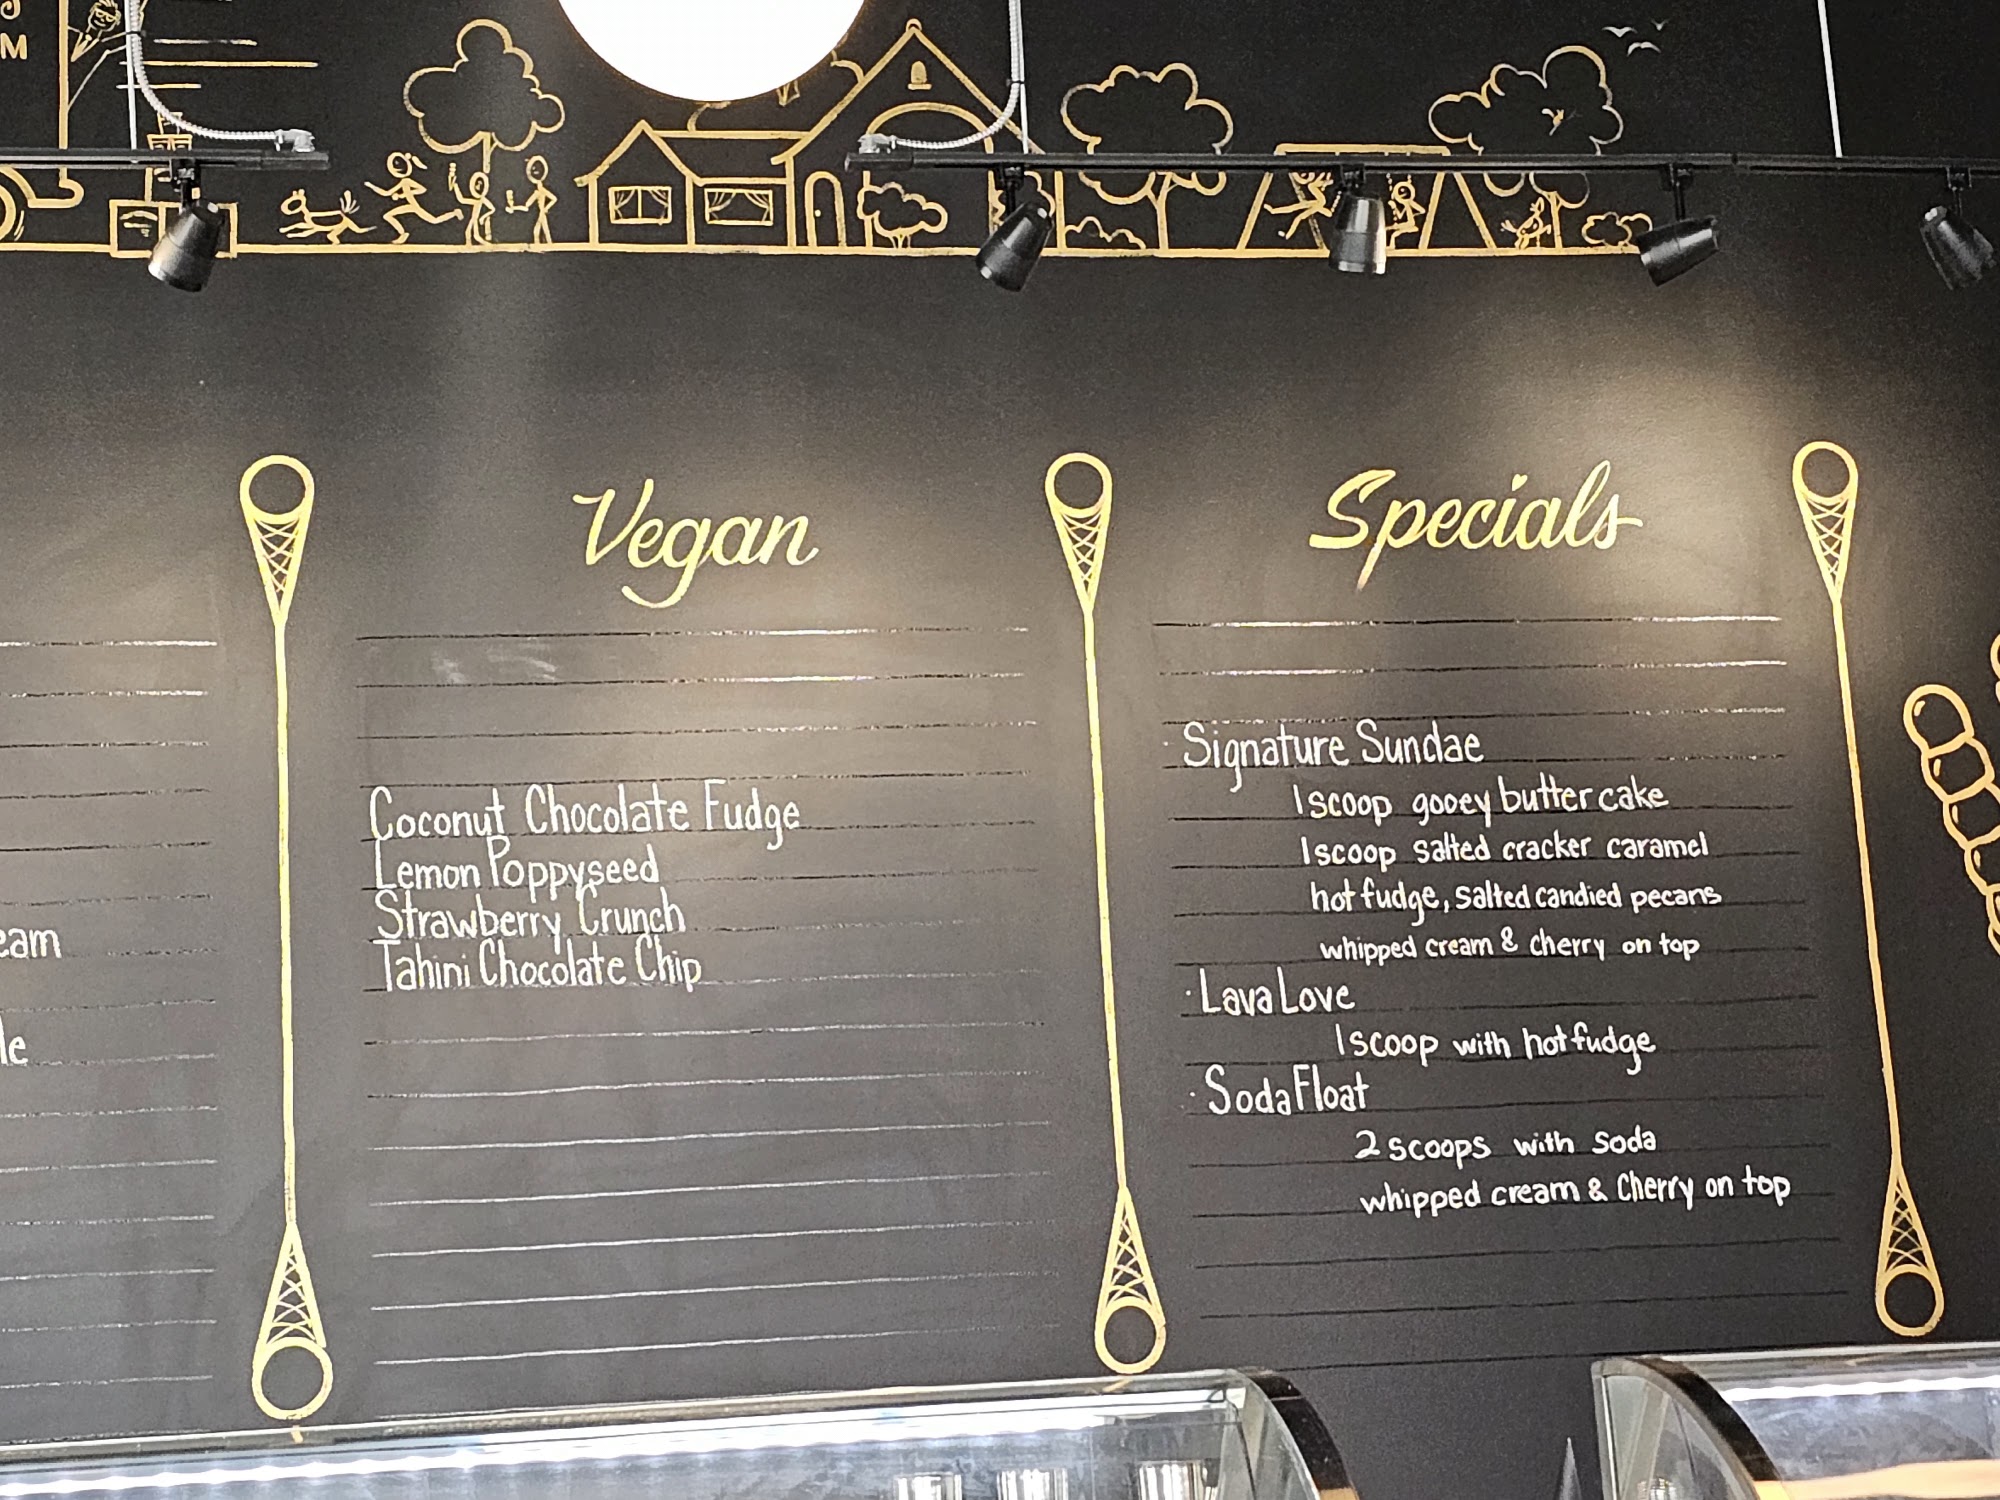 M
eam
le
Vegan
Coconut Chocolate Fudge
Lemon Poppyseed
Strawberry Crunch
Tahini Chocolate Chip
Specials
· Signature Sundae
1 scoop gooey butter cake
1 scoop salted cracker caramel
hot fudge, salted candied pecans
whipped cream & cherry on top
· Lava Love
1 scoop with hot fudge
· Soda Float
2 scoops with soda
whipped cream & cherry on top